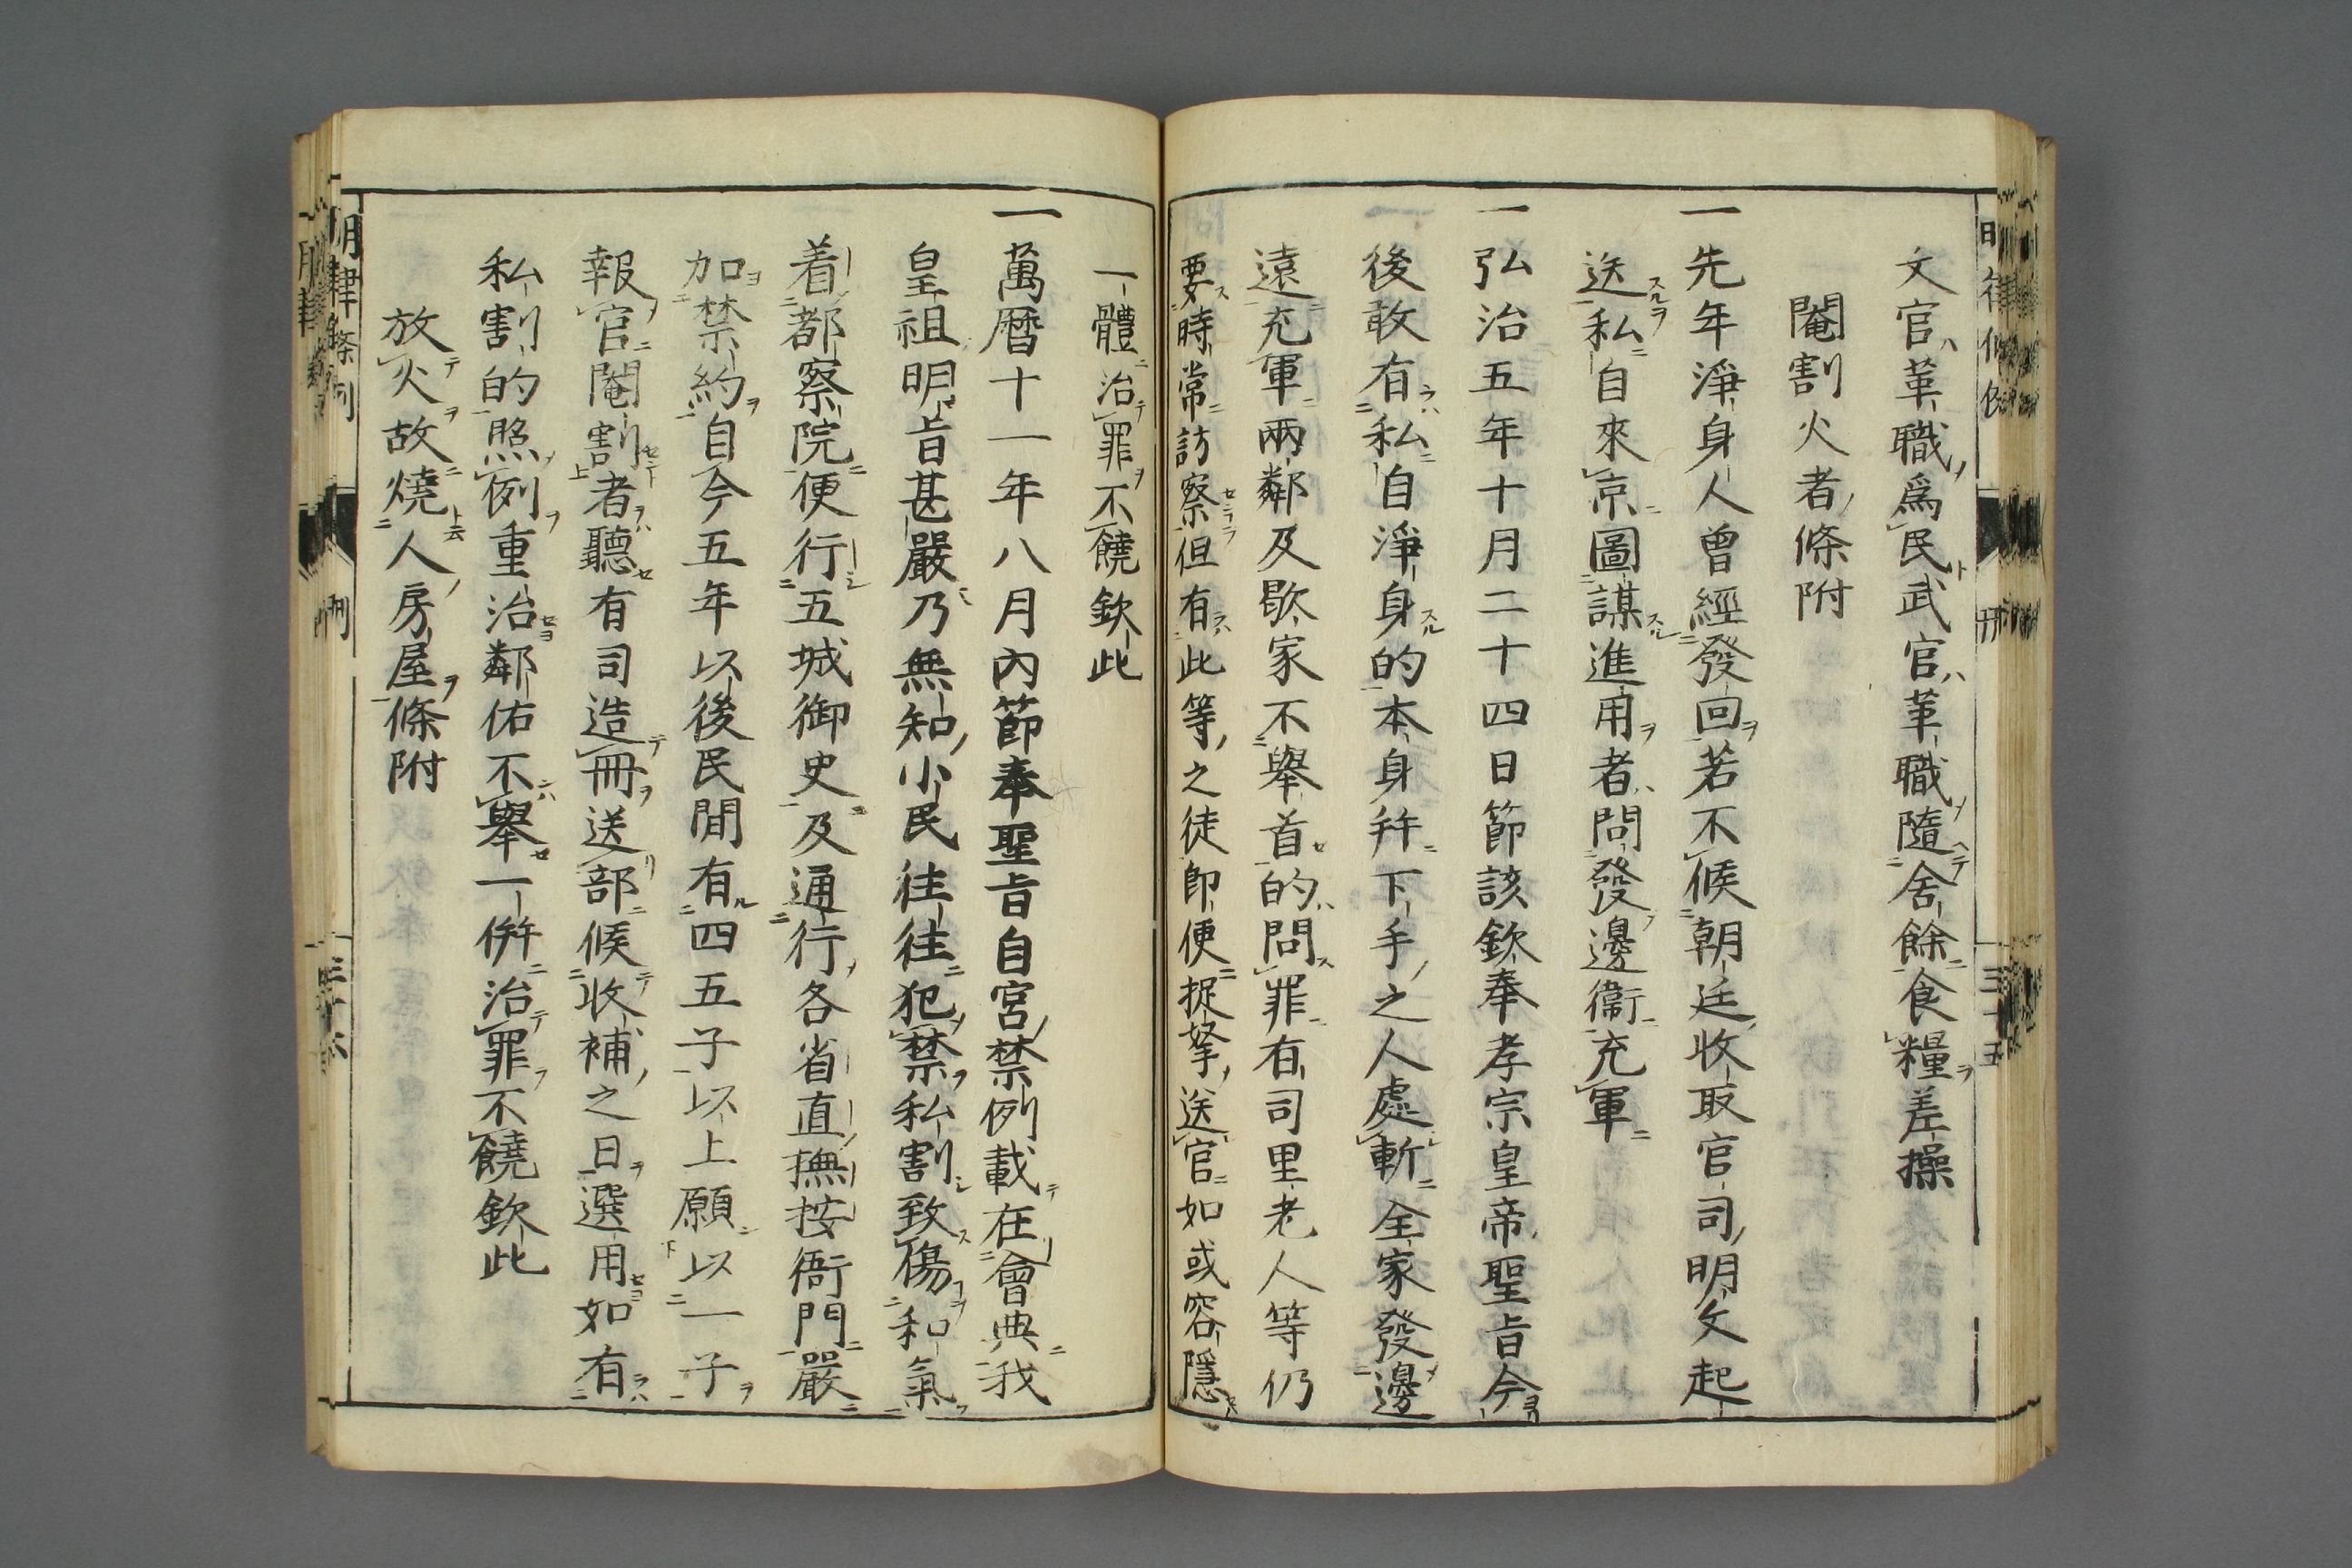 文官革職爲民武官革職隨舍餘食糧差操
閹割火者條附
一先年淨身人曾經發回若不候朝廷收取官司明文起
送私自來京圖謀進用者問發邊衞充軍
一弘治五年十月二十四日節該欽奉孝宗皇帝聖旨今
後敢有私自淨身的本身幷下手之人處斬全家發邊
遠充軍兩鄰及歇家不舉首的問罪有司里老人等仍
要時常訪察但有此等之徒即便捉拏送官如或容隱
一體治罪不饒欽此
一萬曆十一年八月內節奉聖旨自宮禁例載在會典我
皇祖明旨甚嚴乃無知小民往往犯禁私割致傷和氣
着都察院便行五城御史及通行各省直撫按衙門嚴
加禁約自今五年以後民間有四五子以上願以一子
報官閹割者聽有司造冊送部候收補之日選用如有
私割的照例重治鄰佑不舉一併治罪不饒欽此
放火故燒人房屋條附
明律條例
刑
三十六